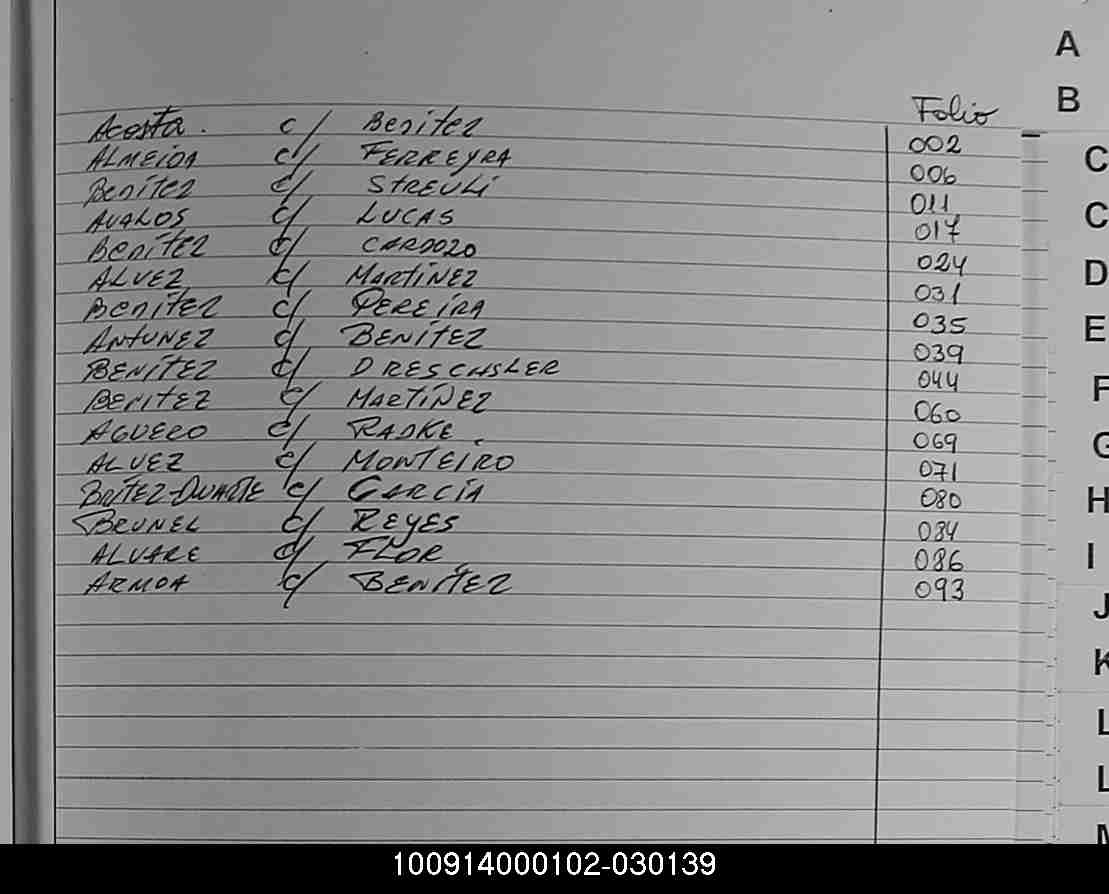 Folio
Acosta. c/ Benitez 002
ALMEIDA c/ FERREYRA 006
Benitez c/ STREULi 011
AVALOS c/ LUCAS 017
Benitez c/ CARDOZO 024
ALVEZ c/ MARTiNEZ 031
Benitez c/ PEREiRA 035
ANTUNEZ c/ BENíTEZ 039
BENíTEZ c/ DRESCHSLER 044
BENITEZ c/ MARTíNEZ 060
AGUERO c/ RADKE. 069
ALVEZ c/ MONTEIRO 071
BRíTEZ-DUARTE c/ GARCíA 080
BRUNEL c/ REYES 084
ALVARE c/ FLOR 086
ARMOA c/ BENíTEZ 093
A
B
C
C
D
E
F
G
H
I
J
K
L
L
M
100914000102-030139